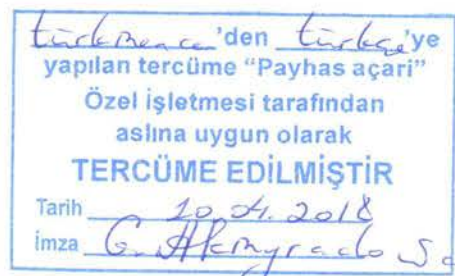 türkmence'den türkçe'ye
yapılan tercüme "Payhas açari"
Özel işletmesi tarafından
aslına uygun olarak
TERCÜME EDİLMİŞTİR
Tarih 10.04.2018
İmza G.